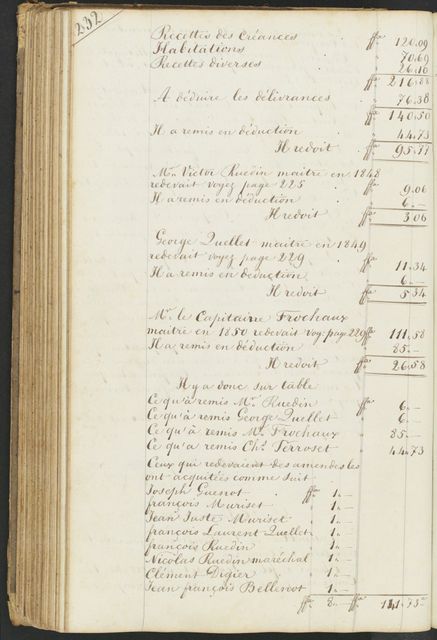 232
Recettes des créances ffs 120.09
Habitations " 70.69
Recettes diverses " 26.10
ffs 216.88
A déduire les délivrances " 76.38
ffs 140.50
Il a remis en déduction " 44.73
Il redoit ffs 95.77
Mr. Victor Ruedin maitre en 1848
redevait voyez page 225 ffs 9.06
Il a remis en déduction " 6.—
Il redoit ffs 3.06
George Quellet maitre en 1849
redevait voyez page 229 ffs 11.34
Il a remis en déduction " 6.—
Il redoit ffs 5.34
Mr. le Capitaine Frochaux
maitre en 1850 redevait voy: page 229 ffs 111.58
Il a remis en déduction 85.—
Il redoit ffs 26.58
Il y a donc sur table
Ce qu'à remis Mr. Ruedin ffs 6.—
Ce qu'à remis George Quellet " 6.—
Ce qu'à remis Mr. Frochaux 85.—
Ce qu'a remis Chs. Perroset 44.73
Ceux qui redevaient des amendes les
ont acquitées comme suit
Joseph Guenot ffs 1.—
françois Muriset " 1.—
Jean Juste Muriset " 1.—
françois Laurent Quellet " 1.—
françois Ruedin " 1.—
Nicolas Ruedin maréchal " 1.—
Clément Digier " 1.—
Jean françois Bellenot " 1.—
ffs 8.— ffs 141.73